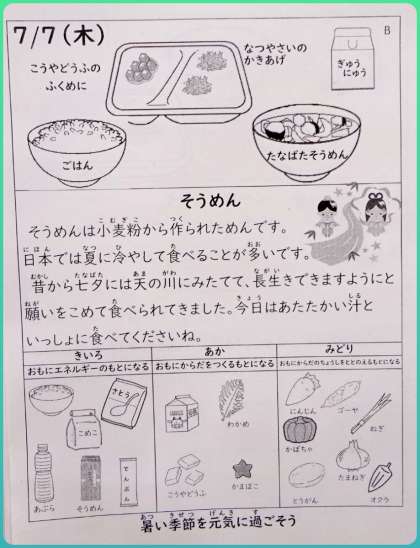 7/7(木)
B
こうやどうふの
ふくめに
なつやさいの
かきあげ
ぎゅう
にゅう
ごはん
たなばたそうめん
そうめん
そうめんは小麦粉から作られためんです。
日本では夏に冷やして食べることが多いです。
昔から七夕には天の川にみたてて、長生きできますようにと
願いをこめて食べられてきました。今日はあたたかい汁と
いっしょに食べてくださいね。
きいろ
あか
みどり
おもにエネルギーのもとになる
おもにからだをつくるもとになる
おもにからだのちょうしをととのえるもとになる
さとう
こめこ
あぶら
そうめん
でんぷん
わかめ
こうやどうふ
かまぼこ
にんじん
ゴーヤ
ねぎ
かぼちゃ
たまねぎ
とうがん
オクラ
暑い季節を元気に過ごそう